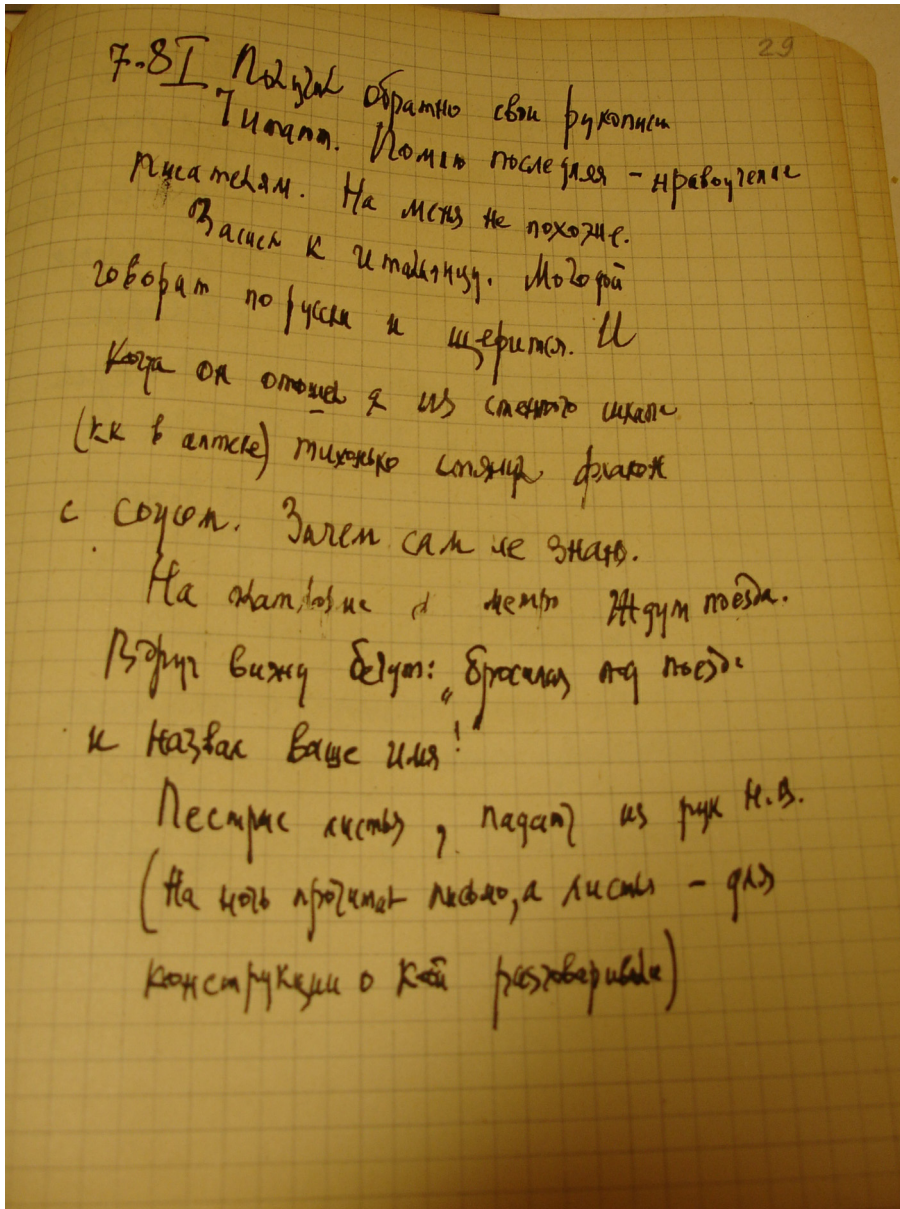 29
7-8 I Получил обратно свои рукописи
Читают. Помню последняя - нравоучение
писателям. На меня не похоже.
к итальянцу. Молодой
говорит по русски и щерится. И
когда он отошел я из стенного шкапа
(кк в аптеке) тихонько стянул флакон
с соусом. Зачем сам не знаю.
На платформе метро ждут поезда.
Вдруг вижу бегут: „бросился под поезд
и назвал ваше имя!"
Пестрые листья, падают из рук Н.В.
(На ночь прочитал письмо, а листья - для
конструкции о кой разговаривали)